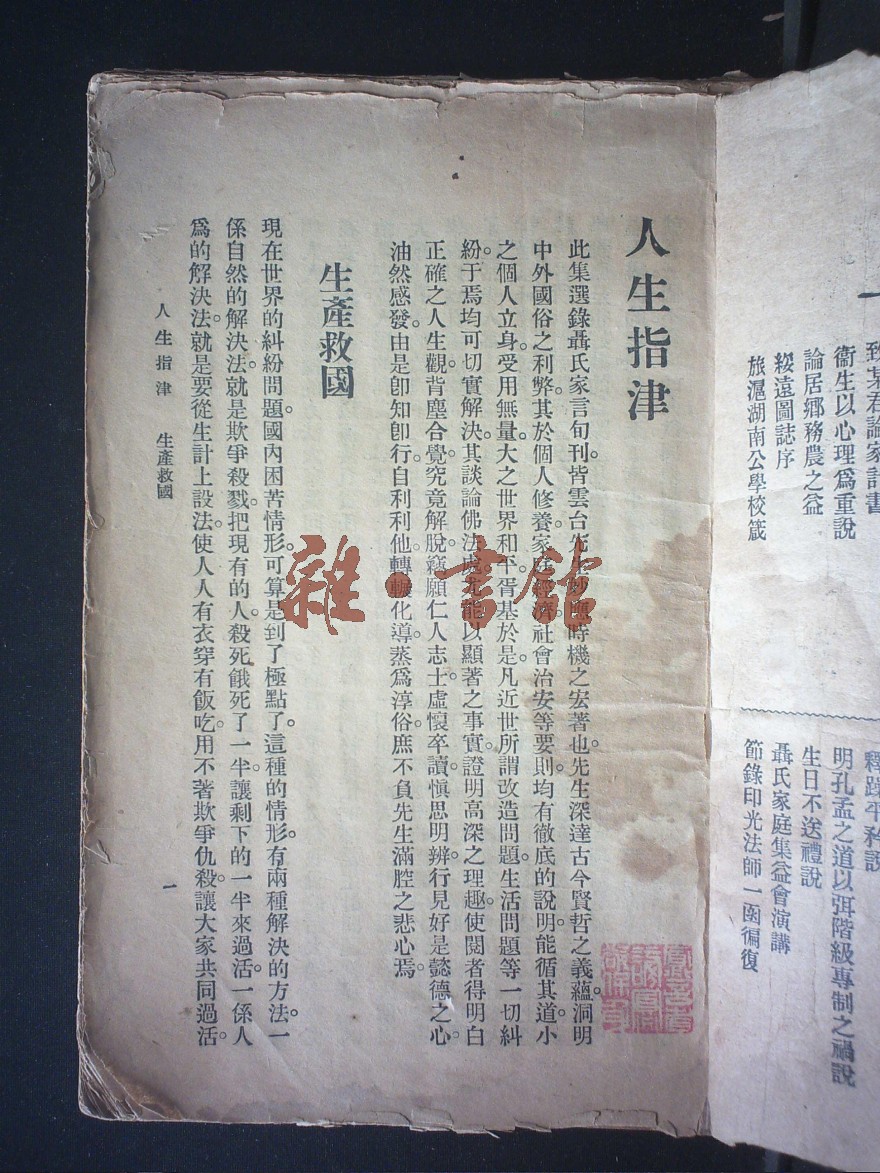 致某君論家計書
衞生以心理爲重說
論居鄉務農之益
綏遠圖誌序
旅滬湖南公學校箴
釋躁平矜說
明孔孟之道以弭階級專制之禍說
生日不送禮說
聶氏家庭集益會演講
節錄印光法師一函徧復
人生指津
此集選錄聶氏家言旬刊。皆雲台先生妙應時機之宏著也。先生深達古今賢哲之義蘊。洞明
中外國俗之利弊。其於個人修養。家庭經濟。社會治安等要則。均有徹底的說明。能循其道。小
之個人立身。受用無量。大之世界和平。胥基於是。凡近世所謂改造問題。生活問題等一切糾
紛。于焉均可切實解決。其談論佛法處。尤能以顯著之事實。證明高深之理趣。使閱者得明白
正確之人生觀。背塵合覺。究竟解脫。竊願仁人志士。虛懷卒讀。愼思明辨。行見好是懿德之心。
油然感發。由是卽知卽行。自利利他。轉輾化導。蒸爲淳俗。庶不負先生滿腔之悲心焉。
生產救國
現在世界的糾紛問題。國內困苦情形。可算是到了極點了。這種的情形。有兩種解決的方法。一
係自然的解決法。就是欺爭殺戮。把現有的人。殺死餓死了一半。讓剩下的一半來過活。一係人
爲的解決法。就是要從生計上設法。使人人有衣穿有飯吃。用不著欺爭仇殺。讓大家共同過活。
人生指津　生產救國
一
雜·書館